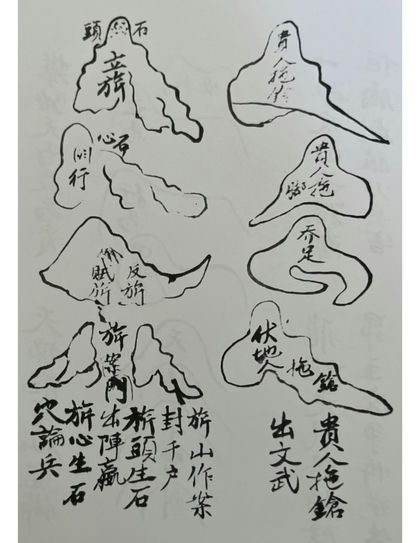 貴人拖鎗
貴人拖腳
乔足
伏地人
拖鎗
貴人拖鎗
出文武
頭
石
立旂
心石
行
賊旂
反旂
旂案門
旂山作案
封千户
旂頭生石
出陣贏
旂心生石
穴論兵